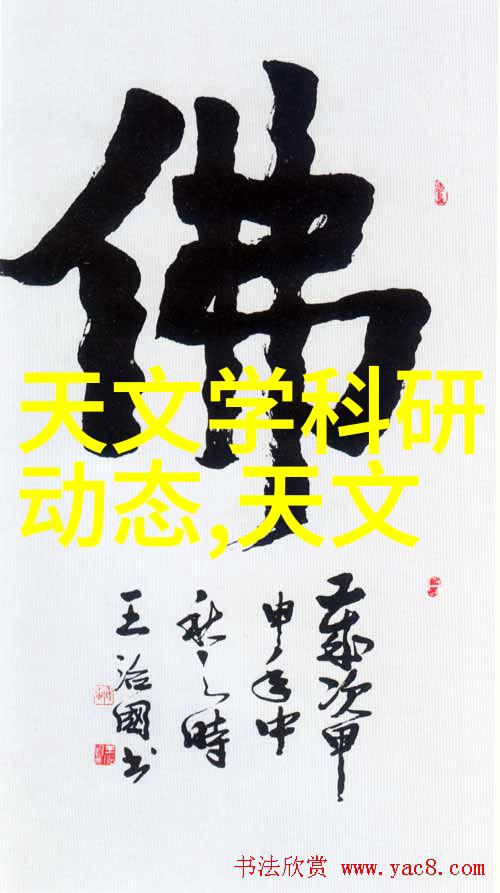 佛
天文学科研
动态,天文
岁次甲
申年中
秋之时
王治国书
书法欣赏 www.yac8.com